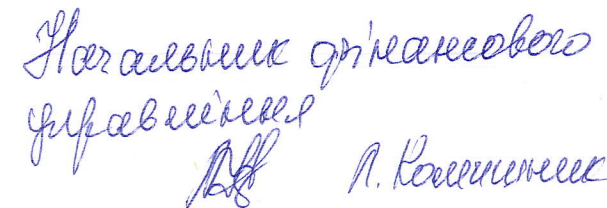 Начальник фінансового
управління
Л. Калашник